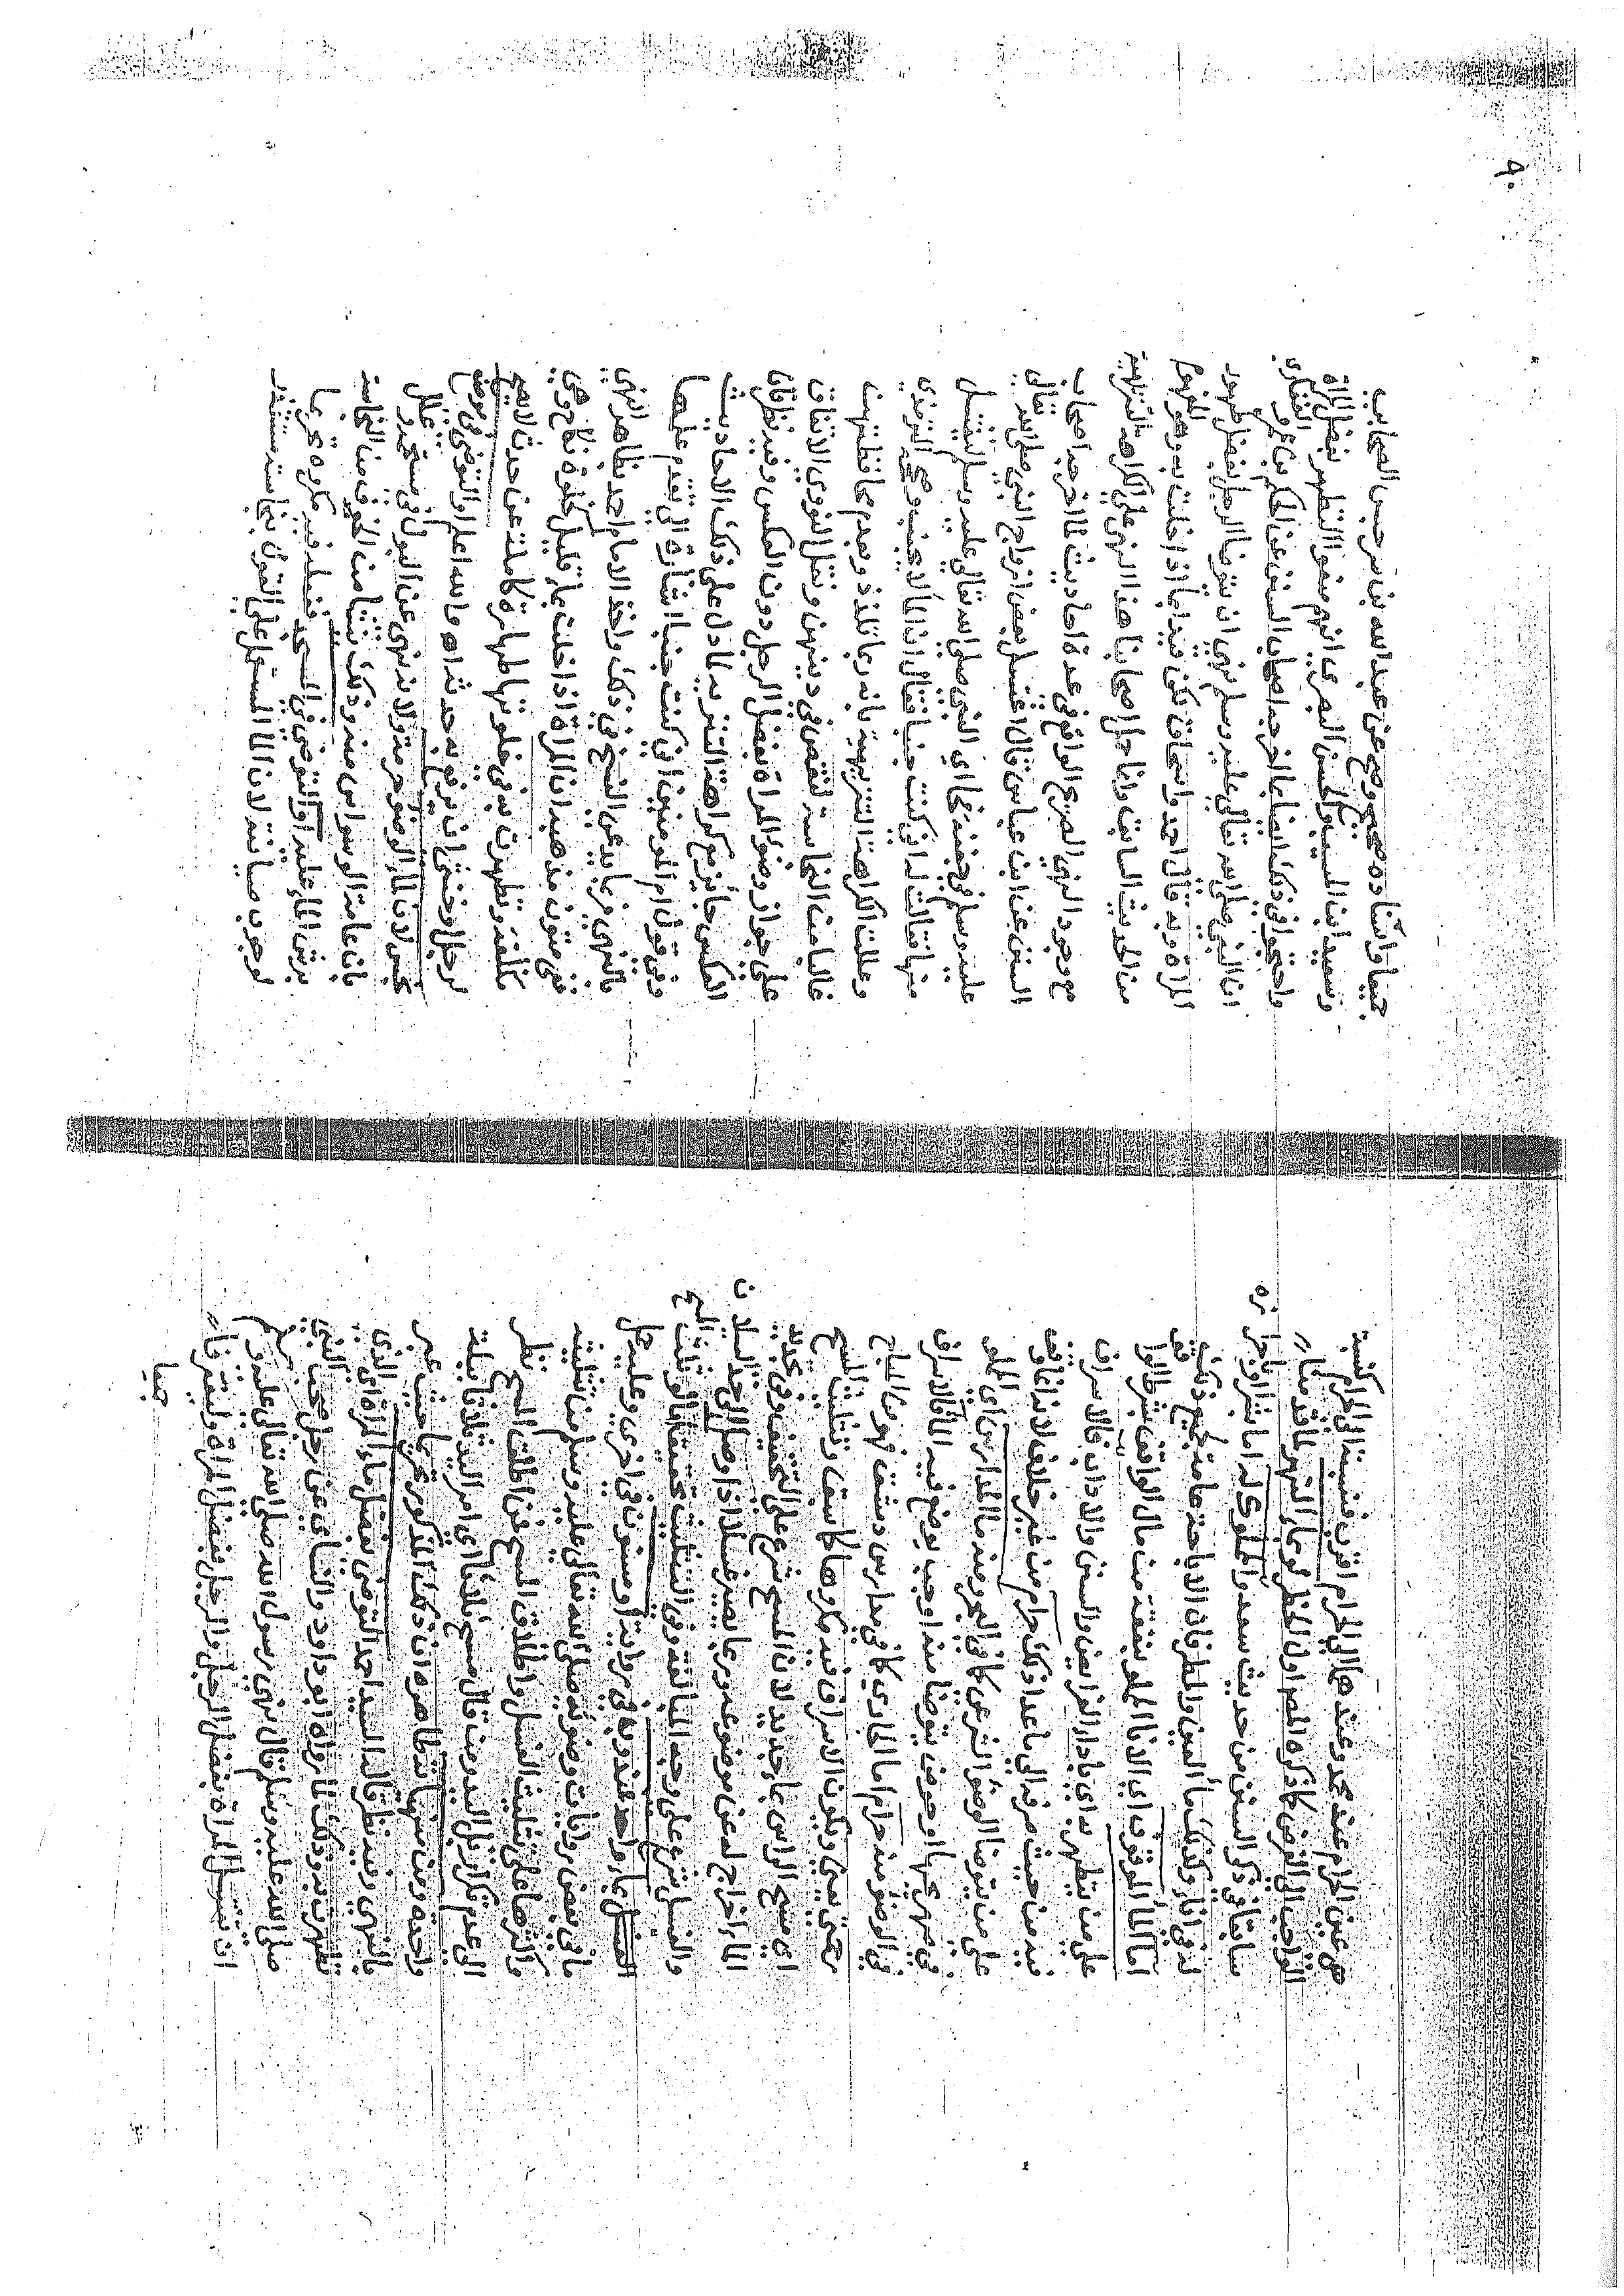 هي عين الحرام عند محمد وعندهما الى الحرام اقرب فنسبته الى الحرام كنسبة
الواجب الى الفرض كما ذكره المص اول الحظر لو بماء النهر لما قدمناه
سابقا في ذكر السنن من حديث سعد والمملوك له اما بشراء او باحرازه
له في اناء وكذلك ماء العين والمطر فان الاباحة عامة بجميع ذلك
اما الماء الموقوف اي الاناء المملو بنفقة من مال الواقف بشرط الواقف
على من يتطهر به اي باداء الفرايض والسنن والاداب فالاسراف
فيه من حيث صرفه الى ما عدا ذلك حرام من غير خلاف لانه انما وقف
على من يتوضا الوضوء الشرعي كما في البحر ومنه ماء المدارس اي المملو
في صهريجها او حوض يتوضا منه او جب يوضع فيه الماء فالاسراف
في الوضوء منه حرام اما الجاري كما في مدارس دمشق فهو من المباح
حتى يسمى ويكون الاسراف فيه مكروها كما سبق وتثليث المسح
اي مسح الراس بماء جديد لان المسح شرع على التخفيف وفي تجديد
الماء اخراج له عن موضوعه وربما يصير غسلا اذا وصل الى حد السيلان
والغسل شرع على وجه المبالغة وفي التثليث تحقيقها لو ثلث المسح
بماء واحد فمندوب في رواية او مسنون في اخرى وعليه حمل
ما في بعض روايات وضوئه صلى الله تعالى عليه وسلم من تثليثه
واكثرها على تثليث الغسل واطلاق المسح فمن اطلق المسح نظر
الى عدم تكرار نقل اليد ومن قال مسح ثلاثا اي امر اليد ثلاثا ببلة
واحدة ومن منهياته ظاهره ان ذلك المذكور مكروه تحريما حيث عبر
بالنهي وفيه نظر قاله السيد احمد التوضي بفضل ماء المراة اي الذي
تطهرت به وذلك لما رواه ابو داود والنسائي عن رجل صحب النبي
صلى الله عليه وسلم قال نهى رسول الله صلى الله تعالى عليه وسلم
ان تغتسل المراة بفضل الرجل والرجل بفضل المراة وليغترفا
جميعا
جميعا واسناده صحيح وصح عن عبد الله بن سرجس الصحابي
وسعيد ابن المسيب والحسن البصري انهم منعوا التطهر بفضل المراة
واحتجوا في ذلك ايضا بما اخرجه اصحاب السنن عن الحكم بن عمرو الغفاري
ان النبي صلى الله تعالى عليه وسلم نهى ان يتوضا الرجل بفضل طهور
المراة وبه قال احمد واسحاق لكن قيداه بما اذا خلت به وهو المفهوم
من الحديث السابق وانما حمل اصحابنا هذا النهي على الكراهة التنزيهية
مع وجود النهي الصريح الواقع في عدة احاديث لما اخرجه اصحاب
السنن عن ابن عباس قال اغتسل بعض ازواج النبي صلى الله تعالى
عليه وسلم في جفنة فجا اي النبي صلى الله تعالى عليه وسلم ليغتسل
منها فقالت له اني كنت جنبا فقال ان الماء لا يجنب وصححه الترمذي
وعللت الكراهة التنزيهية بانه ربما تلذذ وبعدم محافظتهن
غالبا من النجاسة لنقص في دينهن ونقل النووي الاتفاق
على جواز وضوء المراة بفضل الرجل دون العكس وفيه نظر فان
العكس جائز مع كراهة التنزيه لما دل على ذلك الاحاديث
وفي قول ام المومنين اني كنت جنبا اشارة الى تقدم علمها
بالنهي فربما يدعى النسخ في ذلك واخذ الامام احمد بظاهر النهي
ففي متون مذهبه ان المراة اذا خلت بماء قليل كخلوة نكاح وهي
مكلفة وتطهرت به في خلوتها طهارة كاملة عن حدث لا يصح
لرجل او خنثى ان يرفع به حدثه اه والله اعلم او التوضي في موضع
نجس لان لماء الوضوء حرمة ولانه نهى عن البول في مستحمه وعلل
بان عامة الوسواس منه وذلك ينشا من الخوف من النجاسة
برش الماء عليه او التوضي في المسجد ففعله فيه مكروه تحريما
لوجوب صيانته لان الماء المستعمل على القول بنجاسته مستقذر